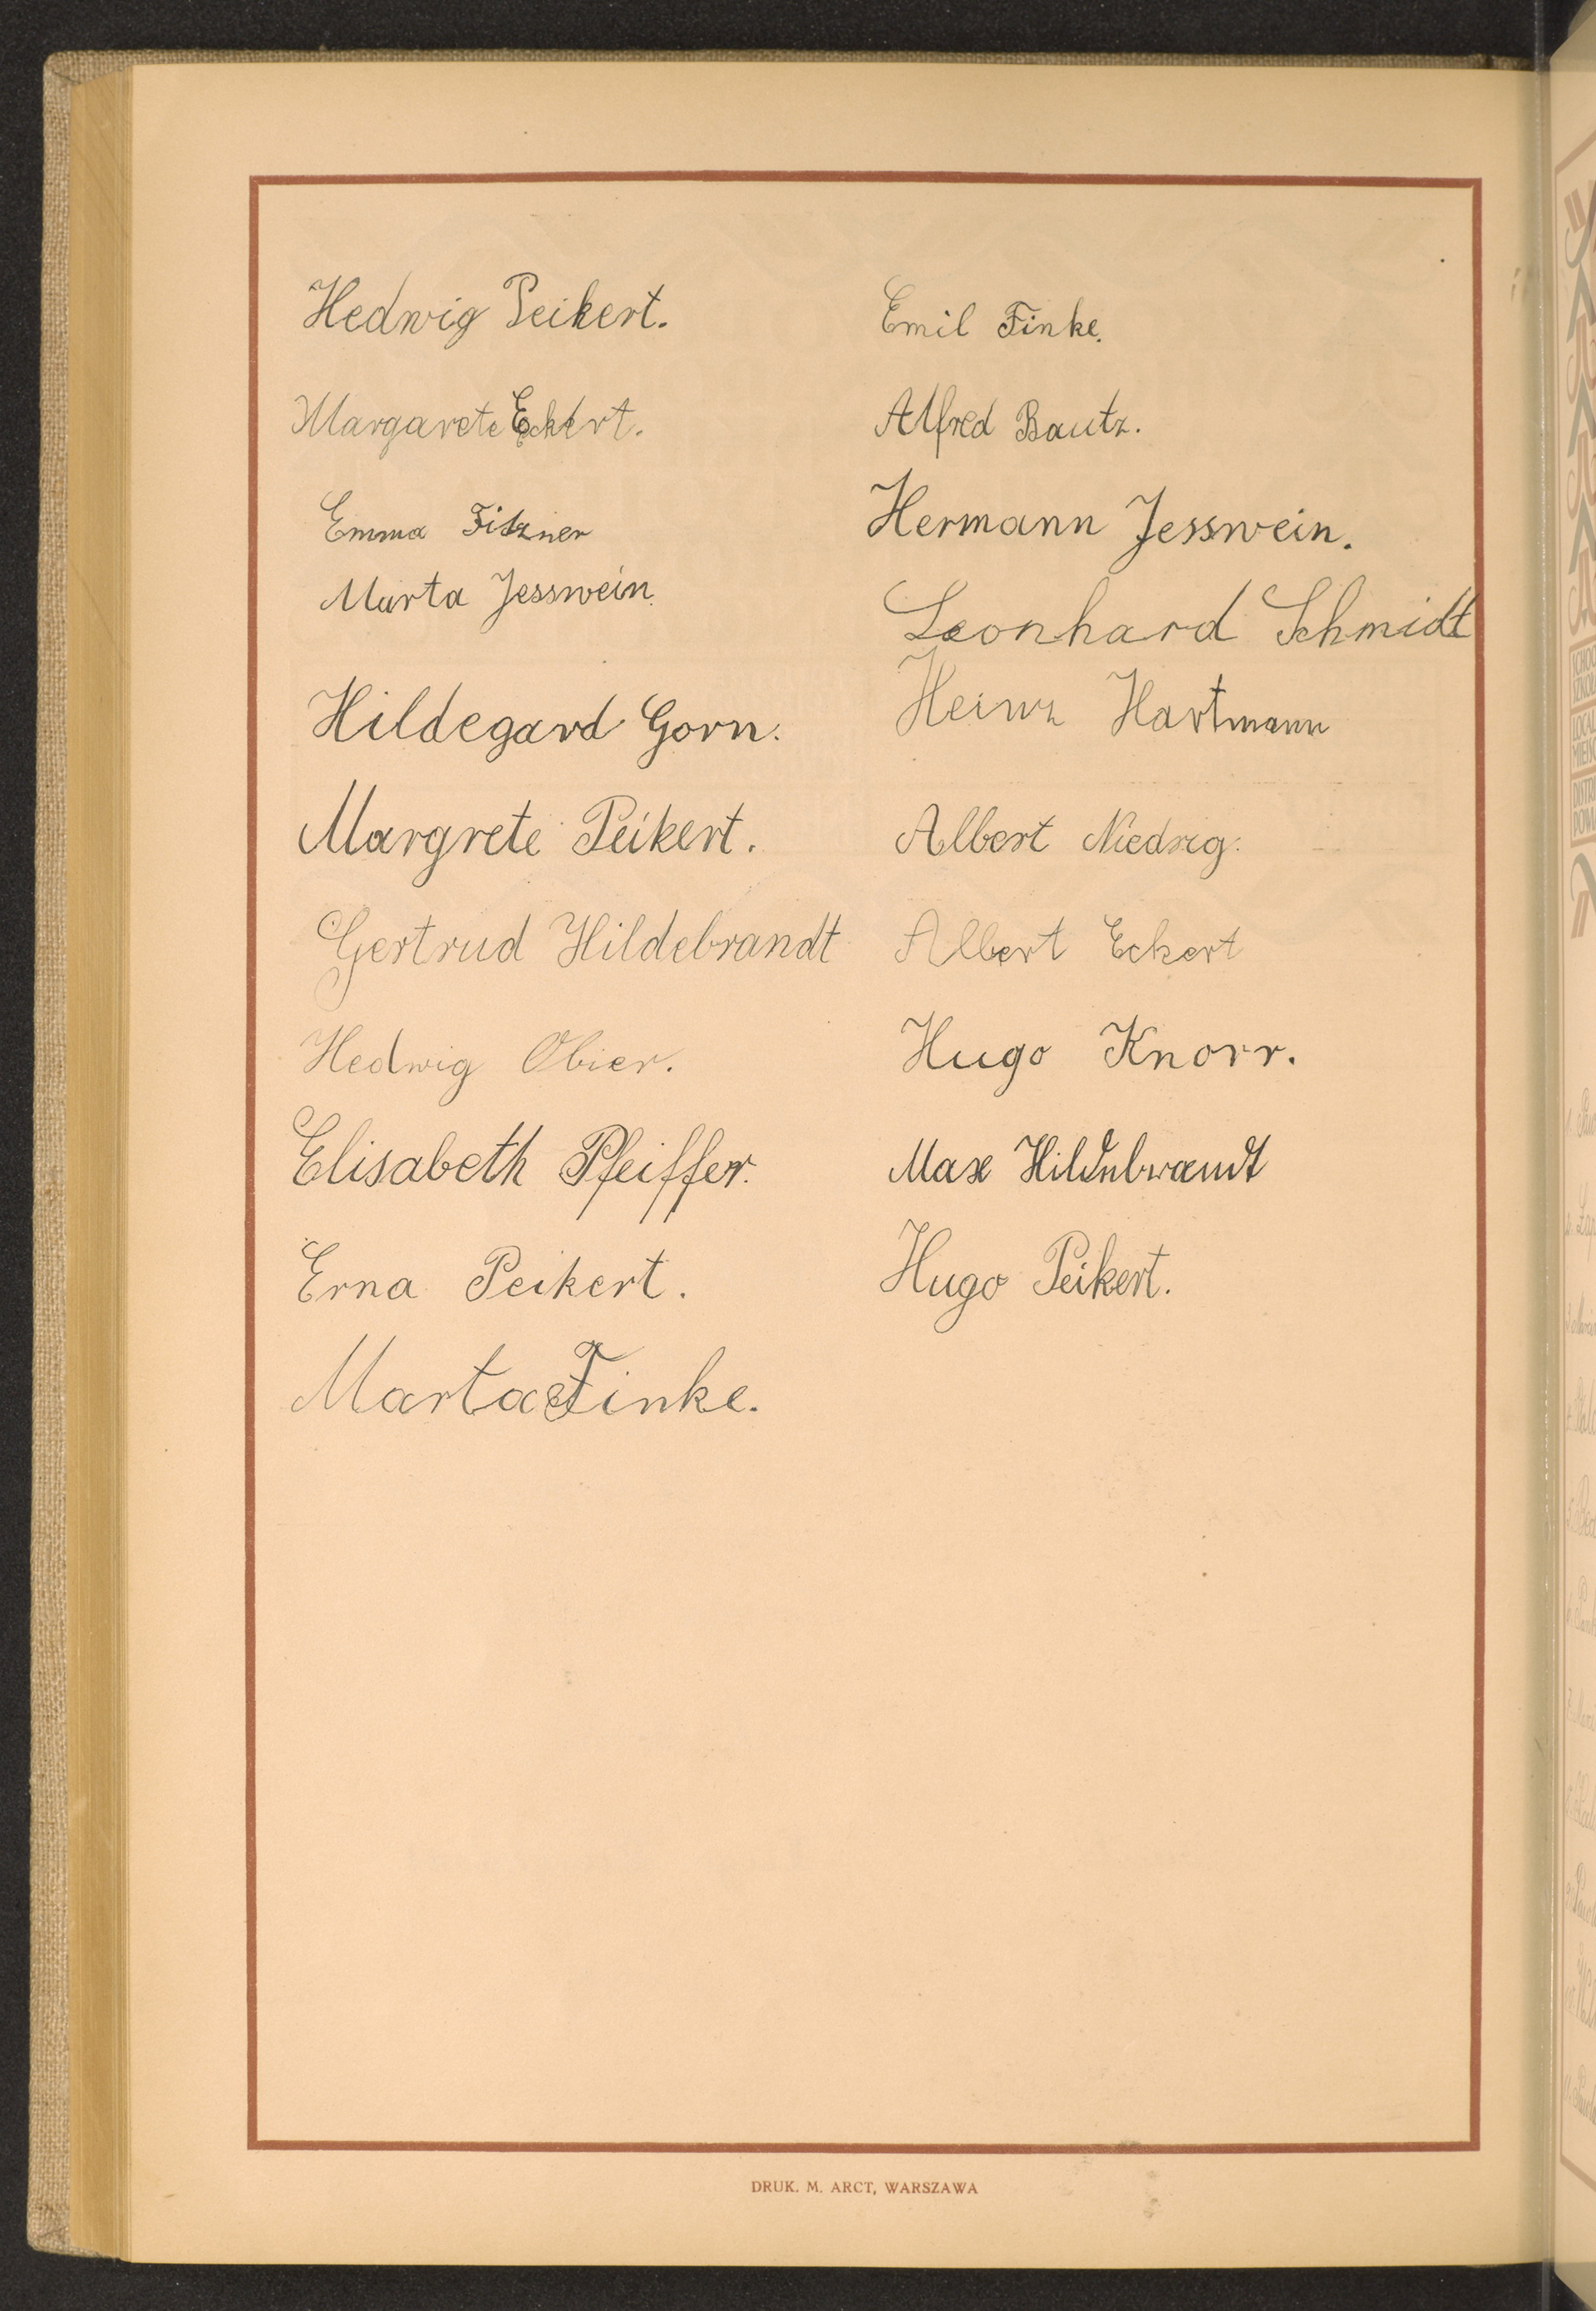 Hedwig Peikert.
Margarete Eckert.
Emma Fitzner
Marta Jesswein.
Hildegard Gorn.
Margrete Peikert.
Gertrud Hildebrandt
Hedwig Obier.
Elisabeth Pfeiffer.
Erna Peikert.
Marta Finke.
Emil Finke.
Alfred Bautz.
Hermann Jesswein.
Leonhard Schmidt
Heinz Hartmann
Albert Niedrig.
Albert Eckert
Hugo Knorr.
Max Hildebrandt
Hugo Peikert.
DRUK. M. ARCT, WARSZAWA